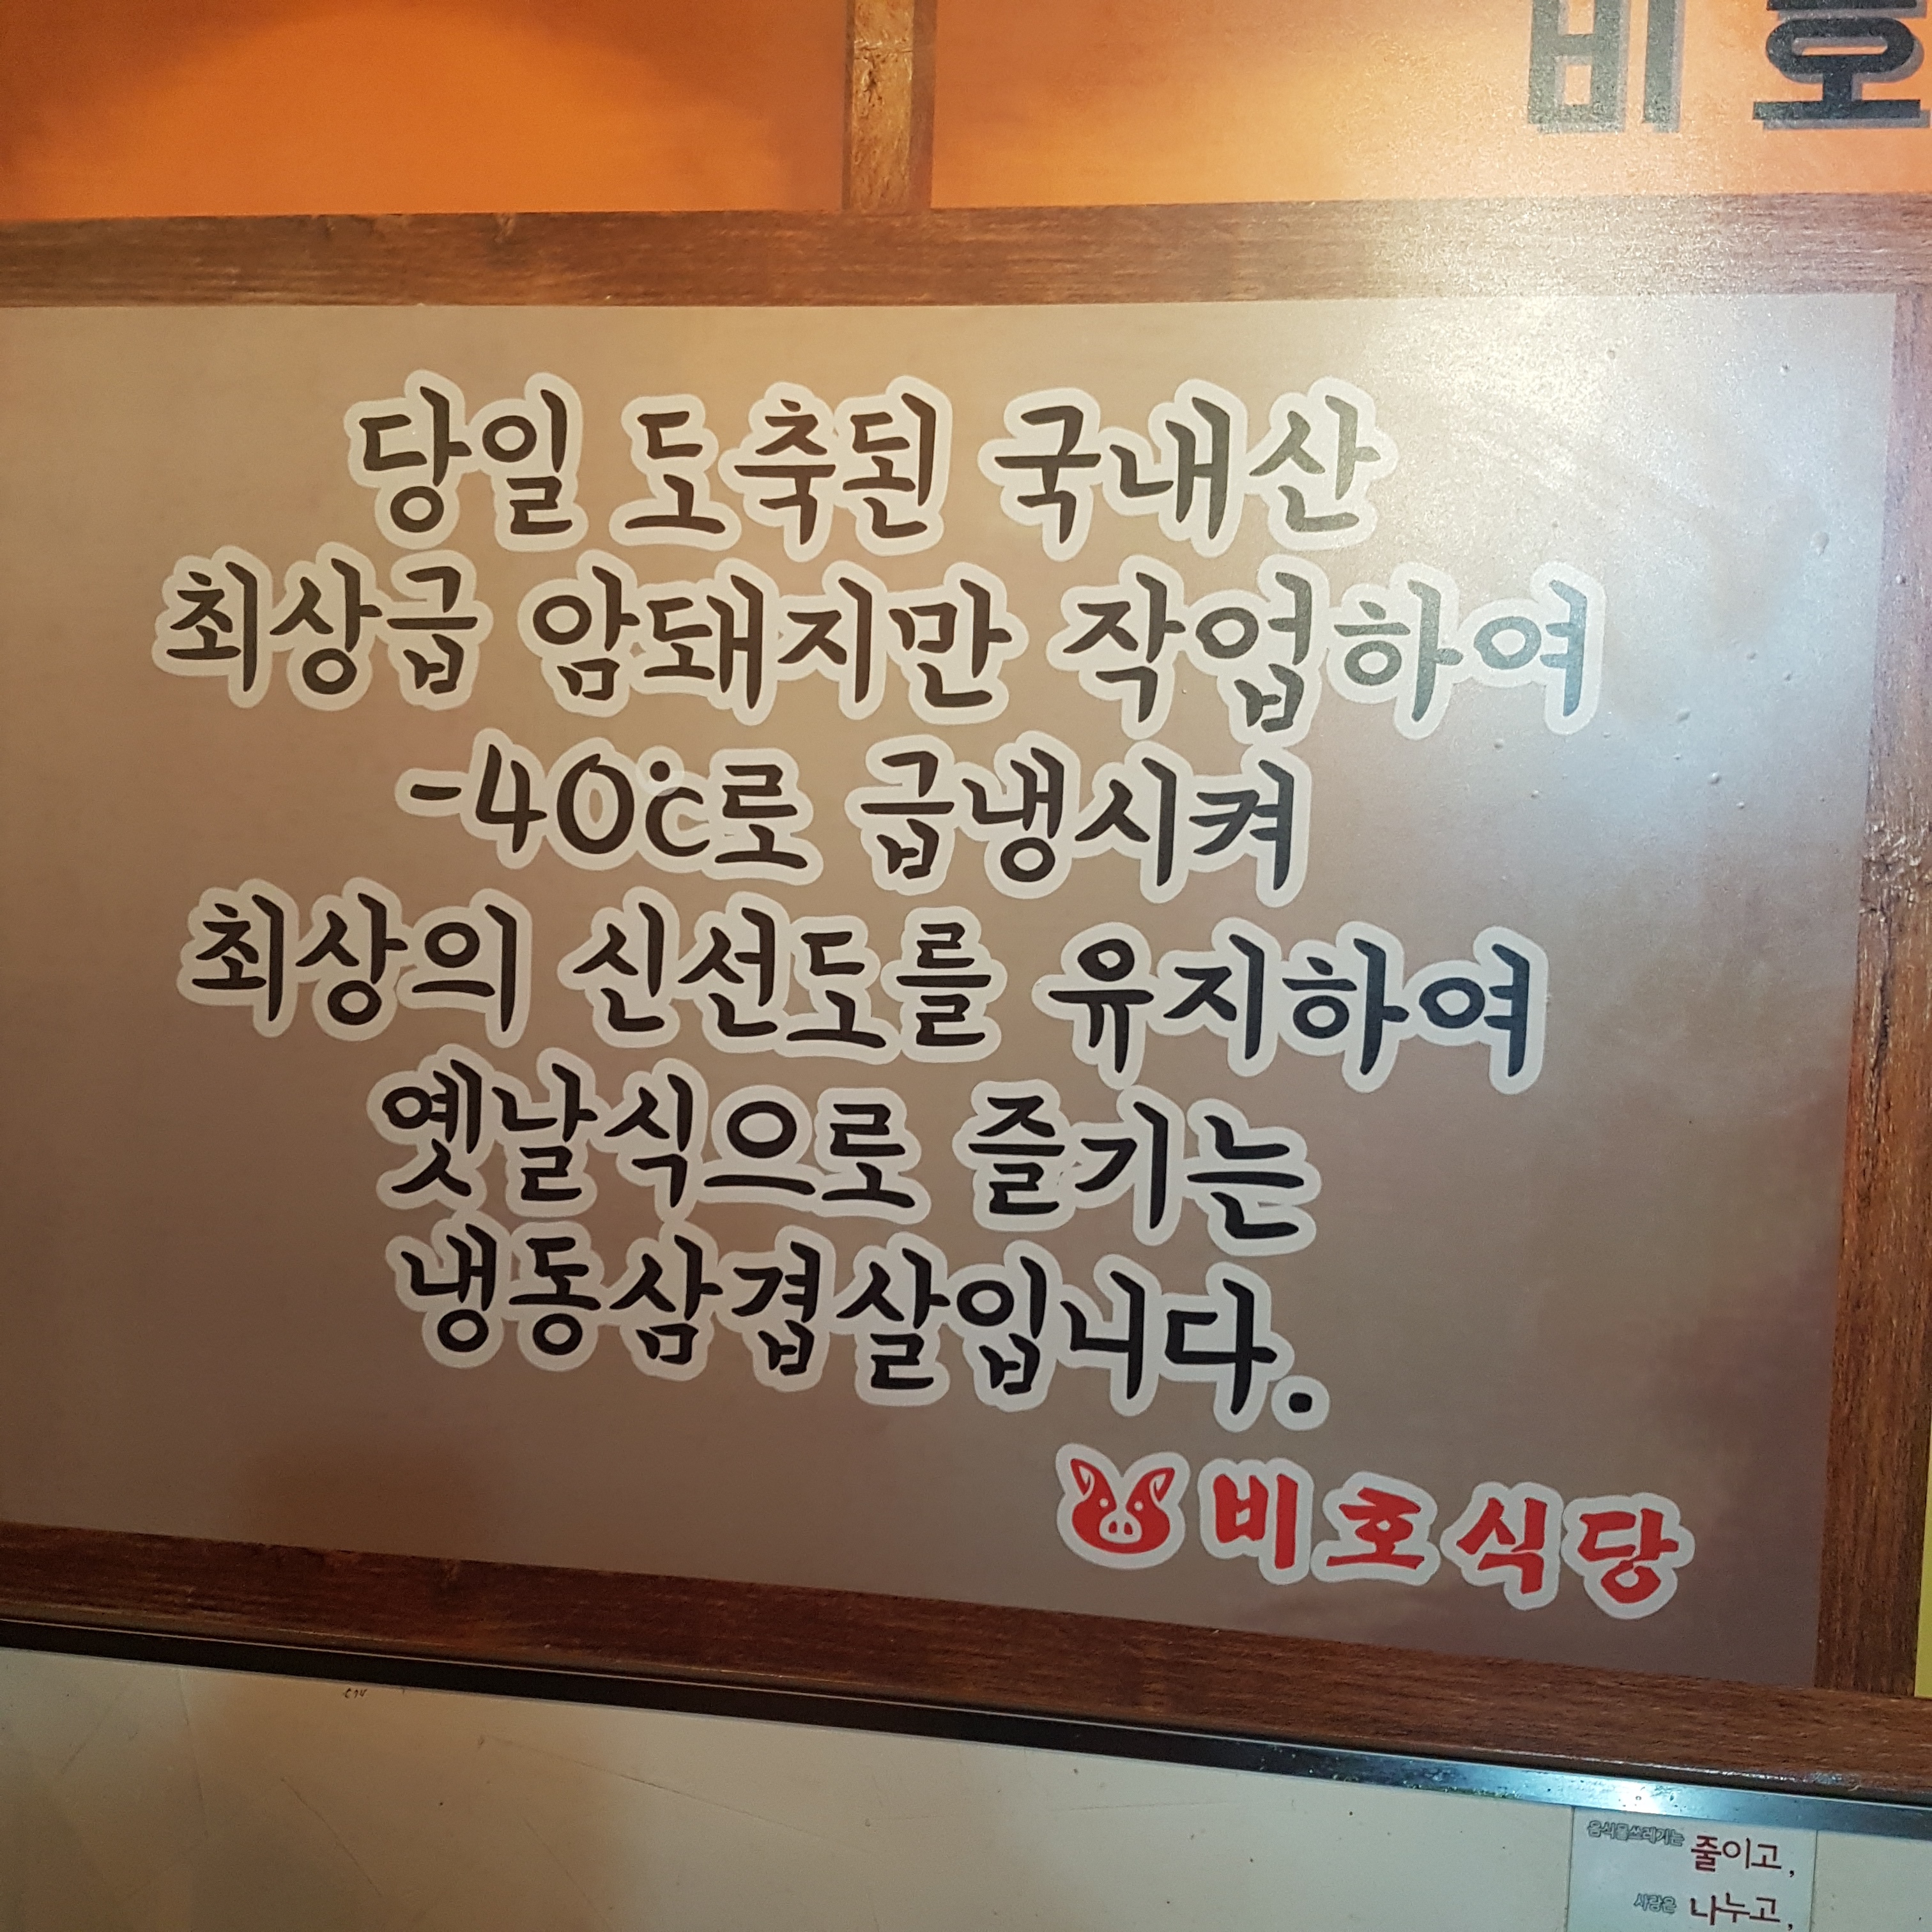 비호
당일 도축된 국내산
최상급 암돼지만 작업하여
-40℃로 급냉시켜
최상의 신선도를 유지하여
옛날식으로 즐기는
냉동삼겹살입니다.
비호식당
음식물쓰레기는 줄이고,
사랑은 나누고,